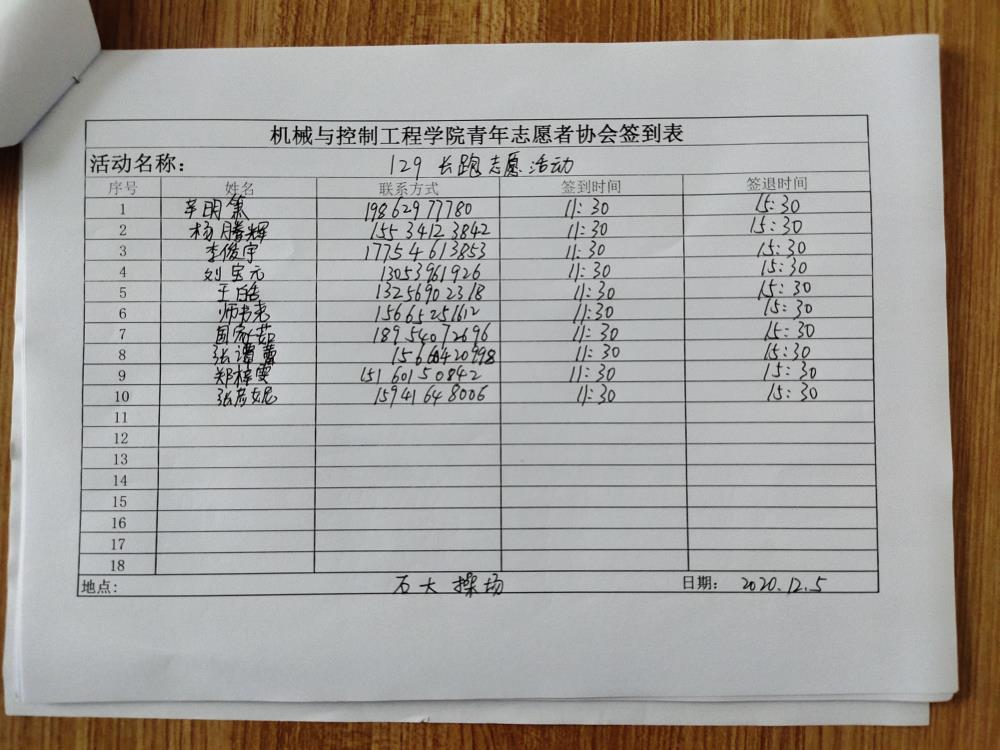 机械与控制工程学院青年志愿者协会签到表
活动名称： 129 长跑志愿活动
序号 姓名 联系方式 签到时间 签退时间
1 辛明 19862977780 11:30 15:30
2 杨腾辉 15534123842 11:30 15:30
3 李俊宇 17754613853 11:30 15:30
4 刘宝元 13053961926 11:30 15:30
5 王皓 13256902318 11:30 15:30
6 师书尧 15665251612 11:30 15:30
7 国家茹 18954072696 11:30 15:30
8 张 11:30 15:30
9 郑梓雯 15160150842 11:30 15:30
10 张彦妮 15941648006 11:30 15:30
11
12
13
14
15
16
17
18
地点： 石大操场 日期： 2020.12.5